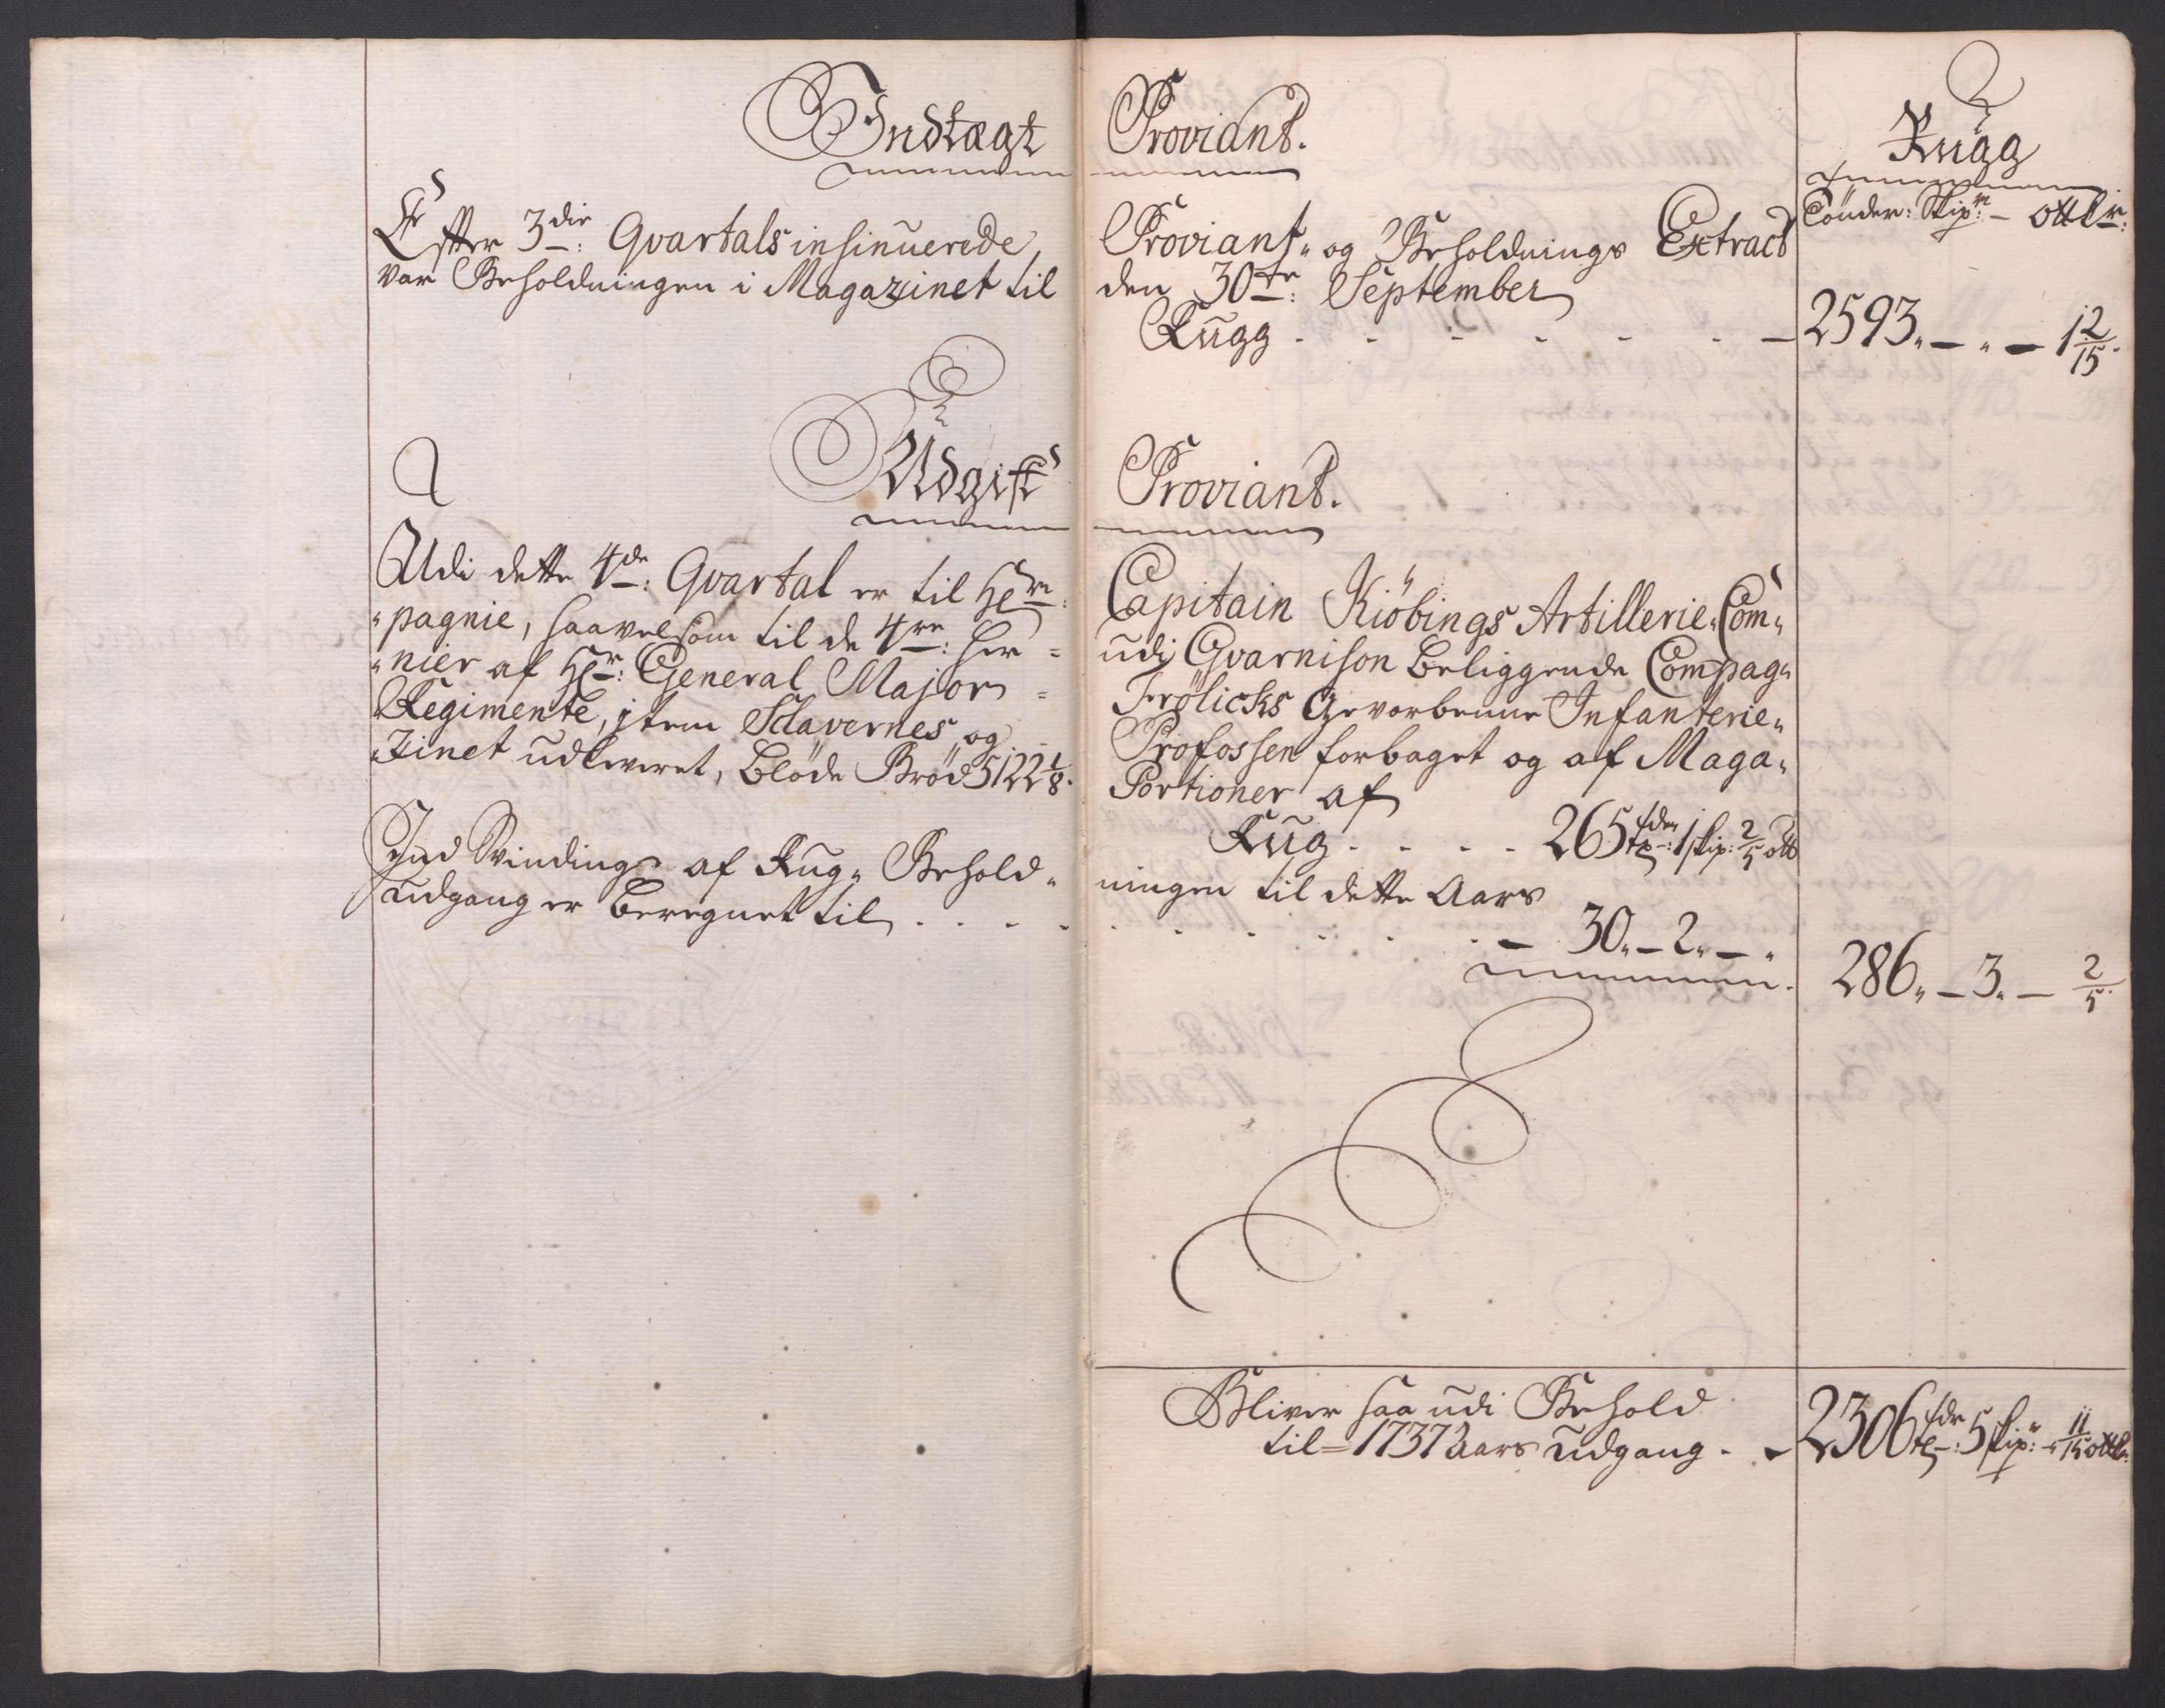 Indtægt Proviant.
Rugg
Tönder: Skip:r - ottlr:
Efter 3die: Qvartals insinuerede Proviant- og Beholdnings Extract
var Beholdningen i Magazinet til den 30te: September
Rugg . - - - - - - 2593. - „ - 1 2/15.
Udgift Proviant.
Udi dette 4de: Qvartal er til Hr: Capitain Kiöbings Artillerie-Com-
-pagnie, saavelsom til de 4re: her = udi Gvarnison beliggende Compag-
-nier af Hr: General Major = Frölichs Gevorbenne Infanterie-
Regimente, item Sclavernes og Profossen forbaget og af Maga-
-zinet udleveret, bløde Brød 5122 1/8. Portioner af
Rug . - - - 265 tdr: 1 skip: 2/5 ott
Ind Svinding af Rug-Behold- ningen til dette Aars
udgang er beregnet til . . . . - - - - - - 30. - 2. - „
286. - 3. - 2/5.
Bliver saa udi Behold
til = 1737 Aars udgang - - 2306 tdr: 5 skip: - 11/15 ottlr: